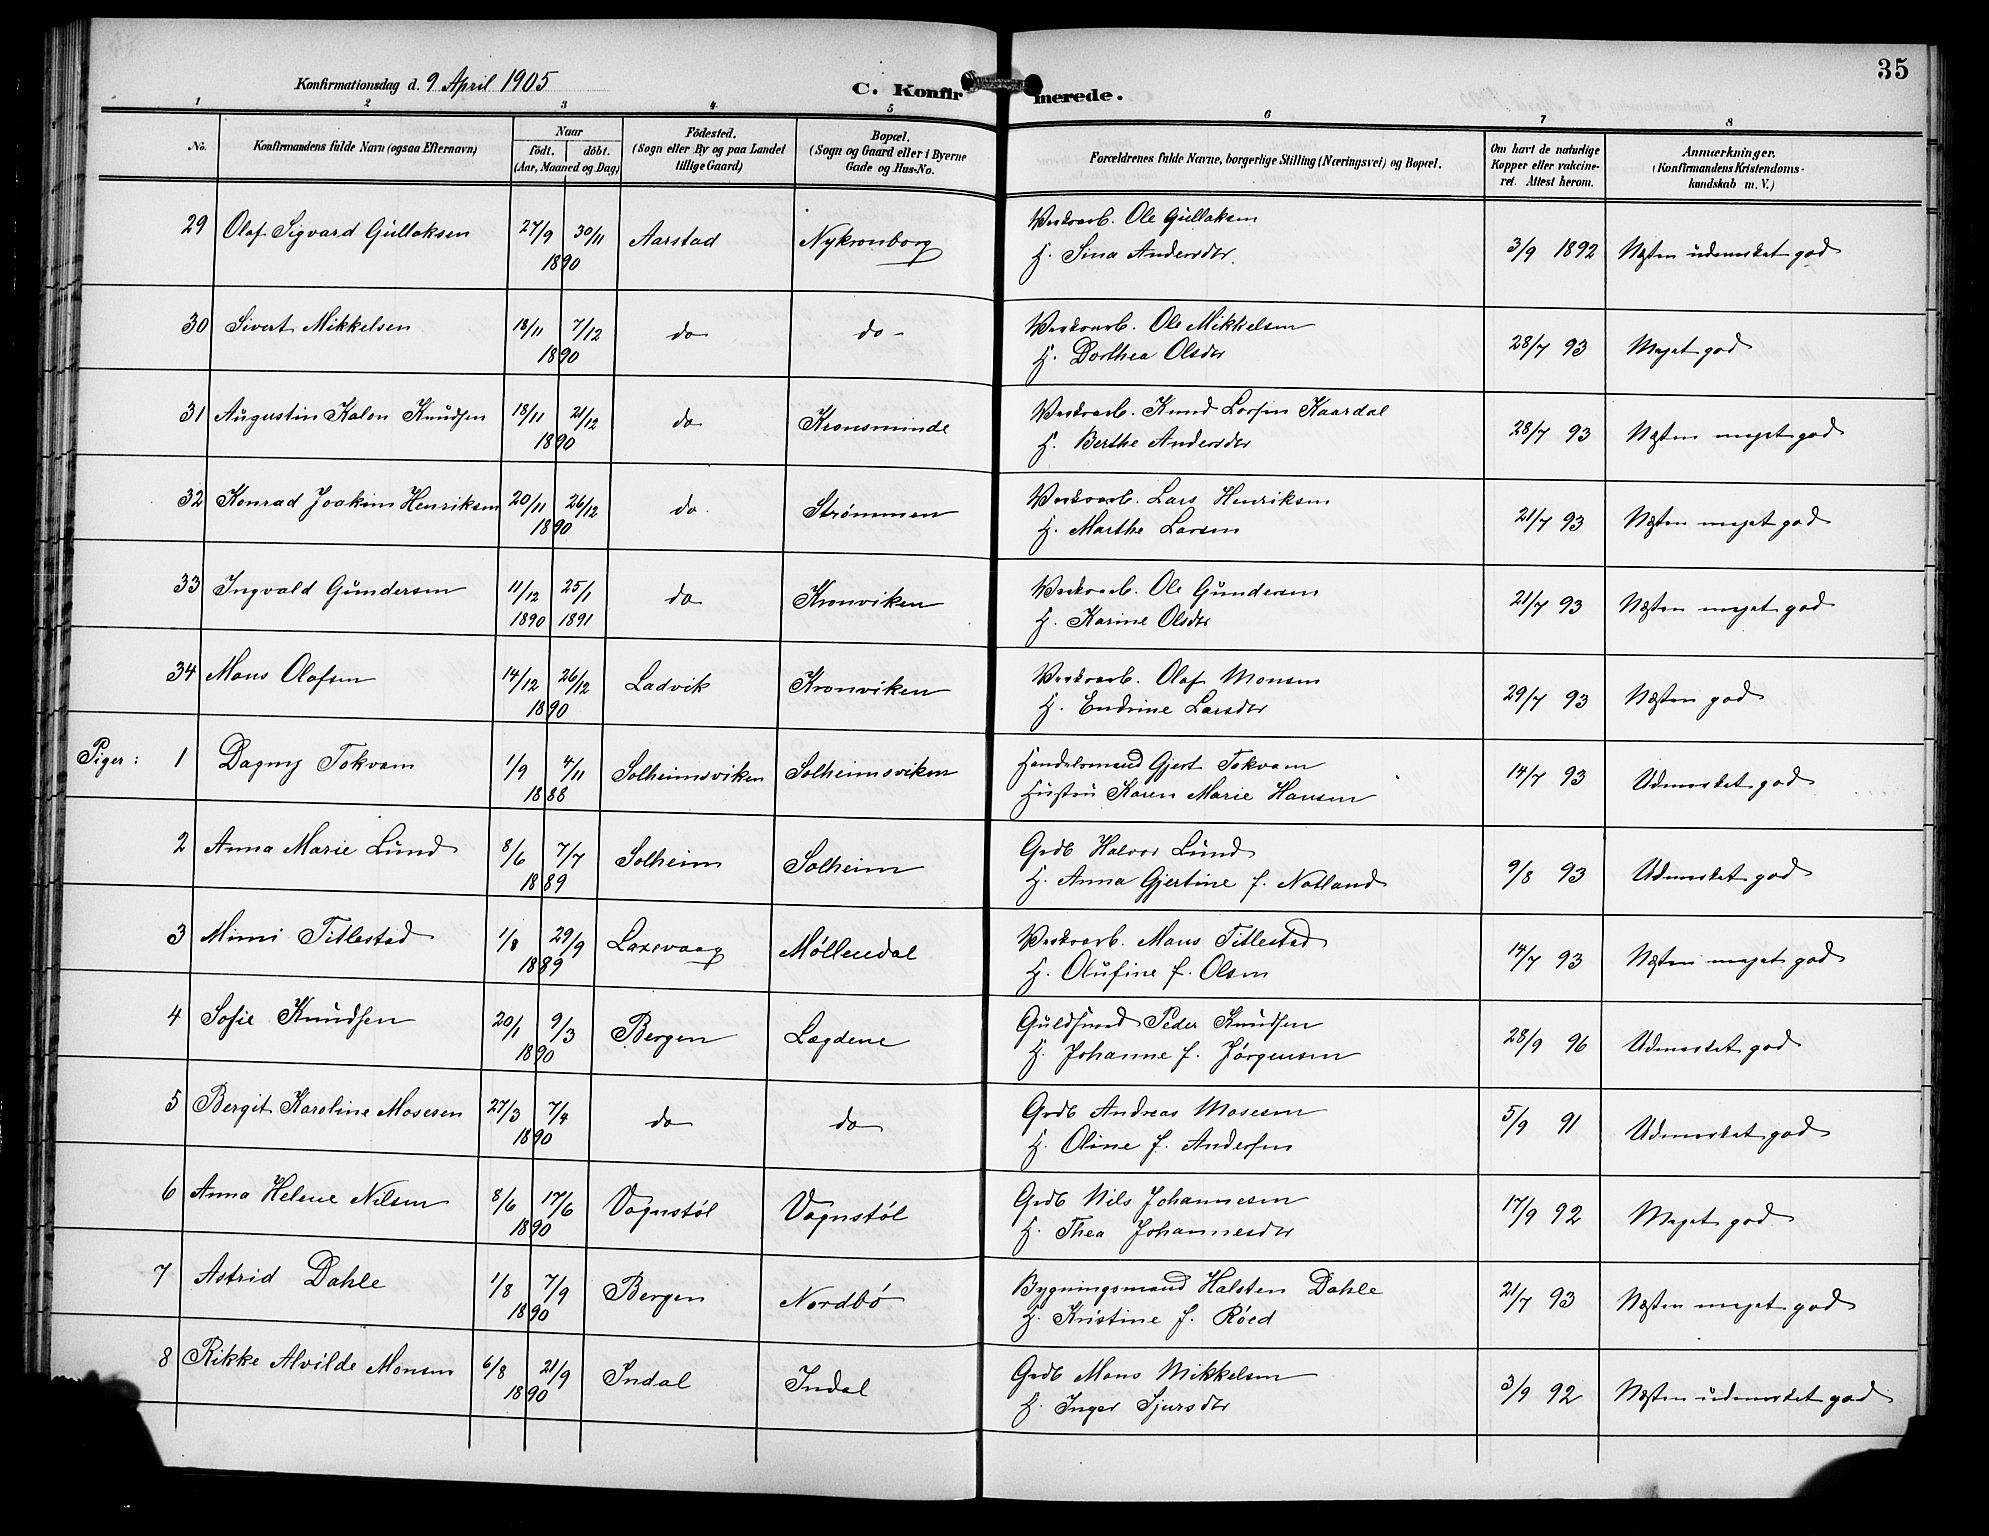 35
Konfirmationsdag d. 9 April 1905
C. Konfirmerede.
1 2 3 4 5 6 7 8
No.
Konfirmandens fulde Navn (ogsaa Efternavn)
Naar
født. døbt.
(Aar, Maaned og Dag)
Fødested.
(Sogn eller By og paa Landet
tillige Gaard)
Bopæl.
(Sogn og Gaard eller i Byerne
Gade og Hus-No.
Forældrenes fulde Navne, borgerlige Stilling (Næringsvei) og Bopæl.
Om havt de naturlige
Kopper eller vakcine-
ret. Attest herom.
Anmærkninger.
(Konfirmandens Kristendoms-
kundskab m. V.)
29 Olaf Sigvard Gullaksen 27/9 30/11 1890 Aarstad Nykronborg Verksarb. Ole Gullaksen
H. Sina Andersdtr. 3/9 1892 Næsten udmerket god
30 Sivert Mikkelsen 18/11 7/12 1890 do do - Verksarb. Ole Mikkelsen
H. Dorthea Olsdtr 28/7 93 Meget god
31 Augustin Kalon Knudsen 18/11 21/12 1890 do Kronsminde Verksarb. Knud Larsen Kaardal
H. Berthe Andersdtr 28/7 93 Næsten meget god
32 Konrad Joakim Henriksen 20/11 26/12 1890 do. Strømmen Verksarb. Lars Henriksen
H. Marthe Larsen 21/7 93 Næsten meget god
33 Ingvald Gundersen 11/12 1890 25/1 1891 do Kronviken Verksarb. Ole Gundersen
H. Karine Olsdtr 21/7 93 Næsten meget god
34 Mons Olafsen 14/12 26/12 1890 Ladvik Kronviken Verksarb. Olaf Monsen
H. Endrine Larsdtr 29/7 93 Næsten god
Piger: 1 Dagny Tokvam 1/9 4/11 1888 Solheimsviken Solheimsviken Handelsmand Gjert Tokvam
Hustru Karen Marie Hansen 14/7 93 Udmerket god
2 Anna Marie Lund 8/6 7/7 1889 Solheim Solheim Grdb Halvor Lund
H. Anna Gjertine f. Natland 9/8 93 Udmerket god
3 Mimi Titlestad 1/8 29/9 1889 Laxevaag Møllendal Verksarb. Mons Titlestad
H. Olufine f. Olsen 14/7 93 Næsten meget god
4 Sofie Knudsen 20/1 9/3 1890 Bergen Lægdene Guldsmed Peder Knudsen
H. Johanne f. Jørgensen 28/9 96 Udmerket god
5 Bergit Karoline Mosesen 27/3 7/4 1890 do do Grdb Andreas Mosesen
H. Oline f. Andersen 5/9 91 Udmerket god
6 Anna Helene Nilsen 8/6 17/6 1890 Vognstøl Vognstøl Grdb Nils Johannesen
H. Thea Johannesdtr 17/9 92 Meget god
7 Astrid Dahle 1/8 7/9 1890 Bergen Nordbø Bygningsmand Halsten Dahle
H. Kristine f. Røed 21/7 93 Næsten meget god
8 Rikke Alvilde Monsen 6/8 21/9 1890 Indal Indal Grdb Mons Mikkelsen
H. Inger Sjursdtr 3/9 92 Næsten udmerket god